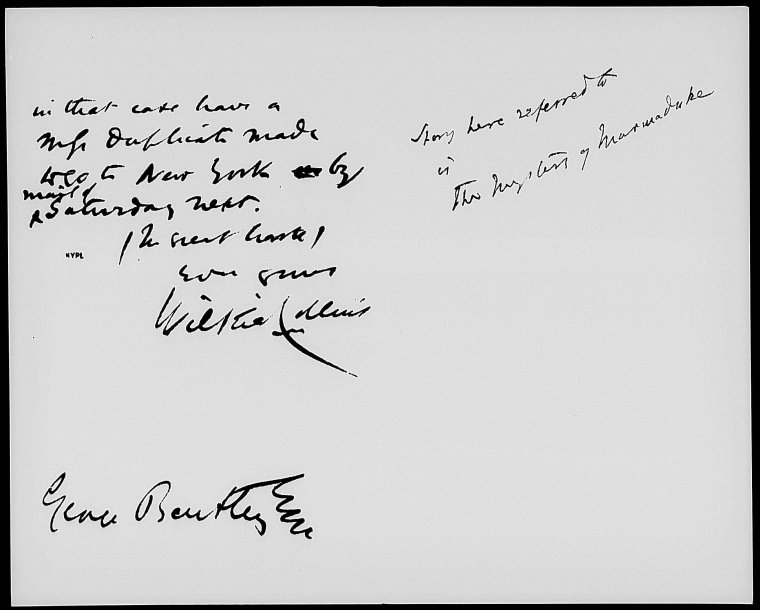 in that case have a
Mss Duplicate made
to go to New York by
mail of
Saturday next.
(In great haste)
Ever yours
Wilkie Collins
NYPL
George Bentley Esqre
Story here referred to
is
The Mystery of Marmaduke